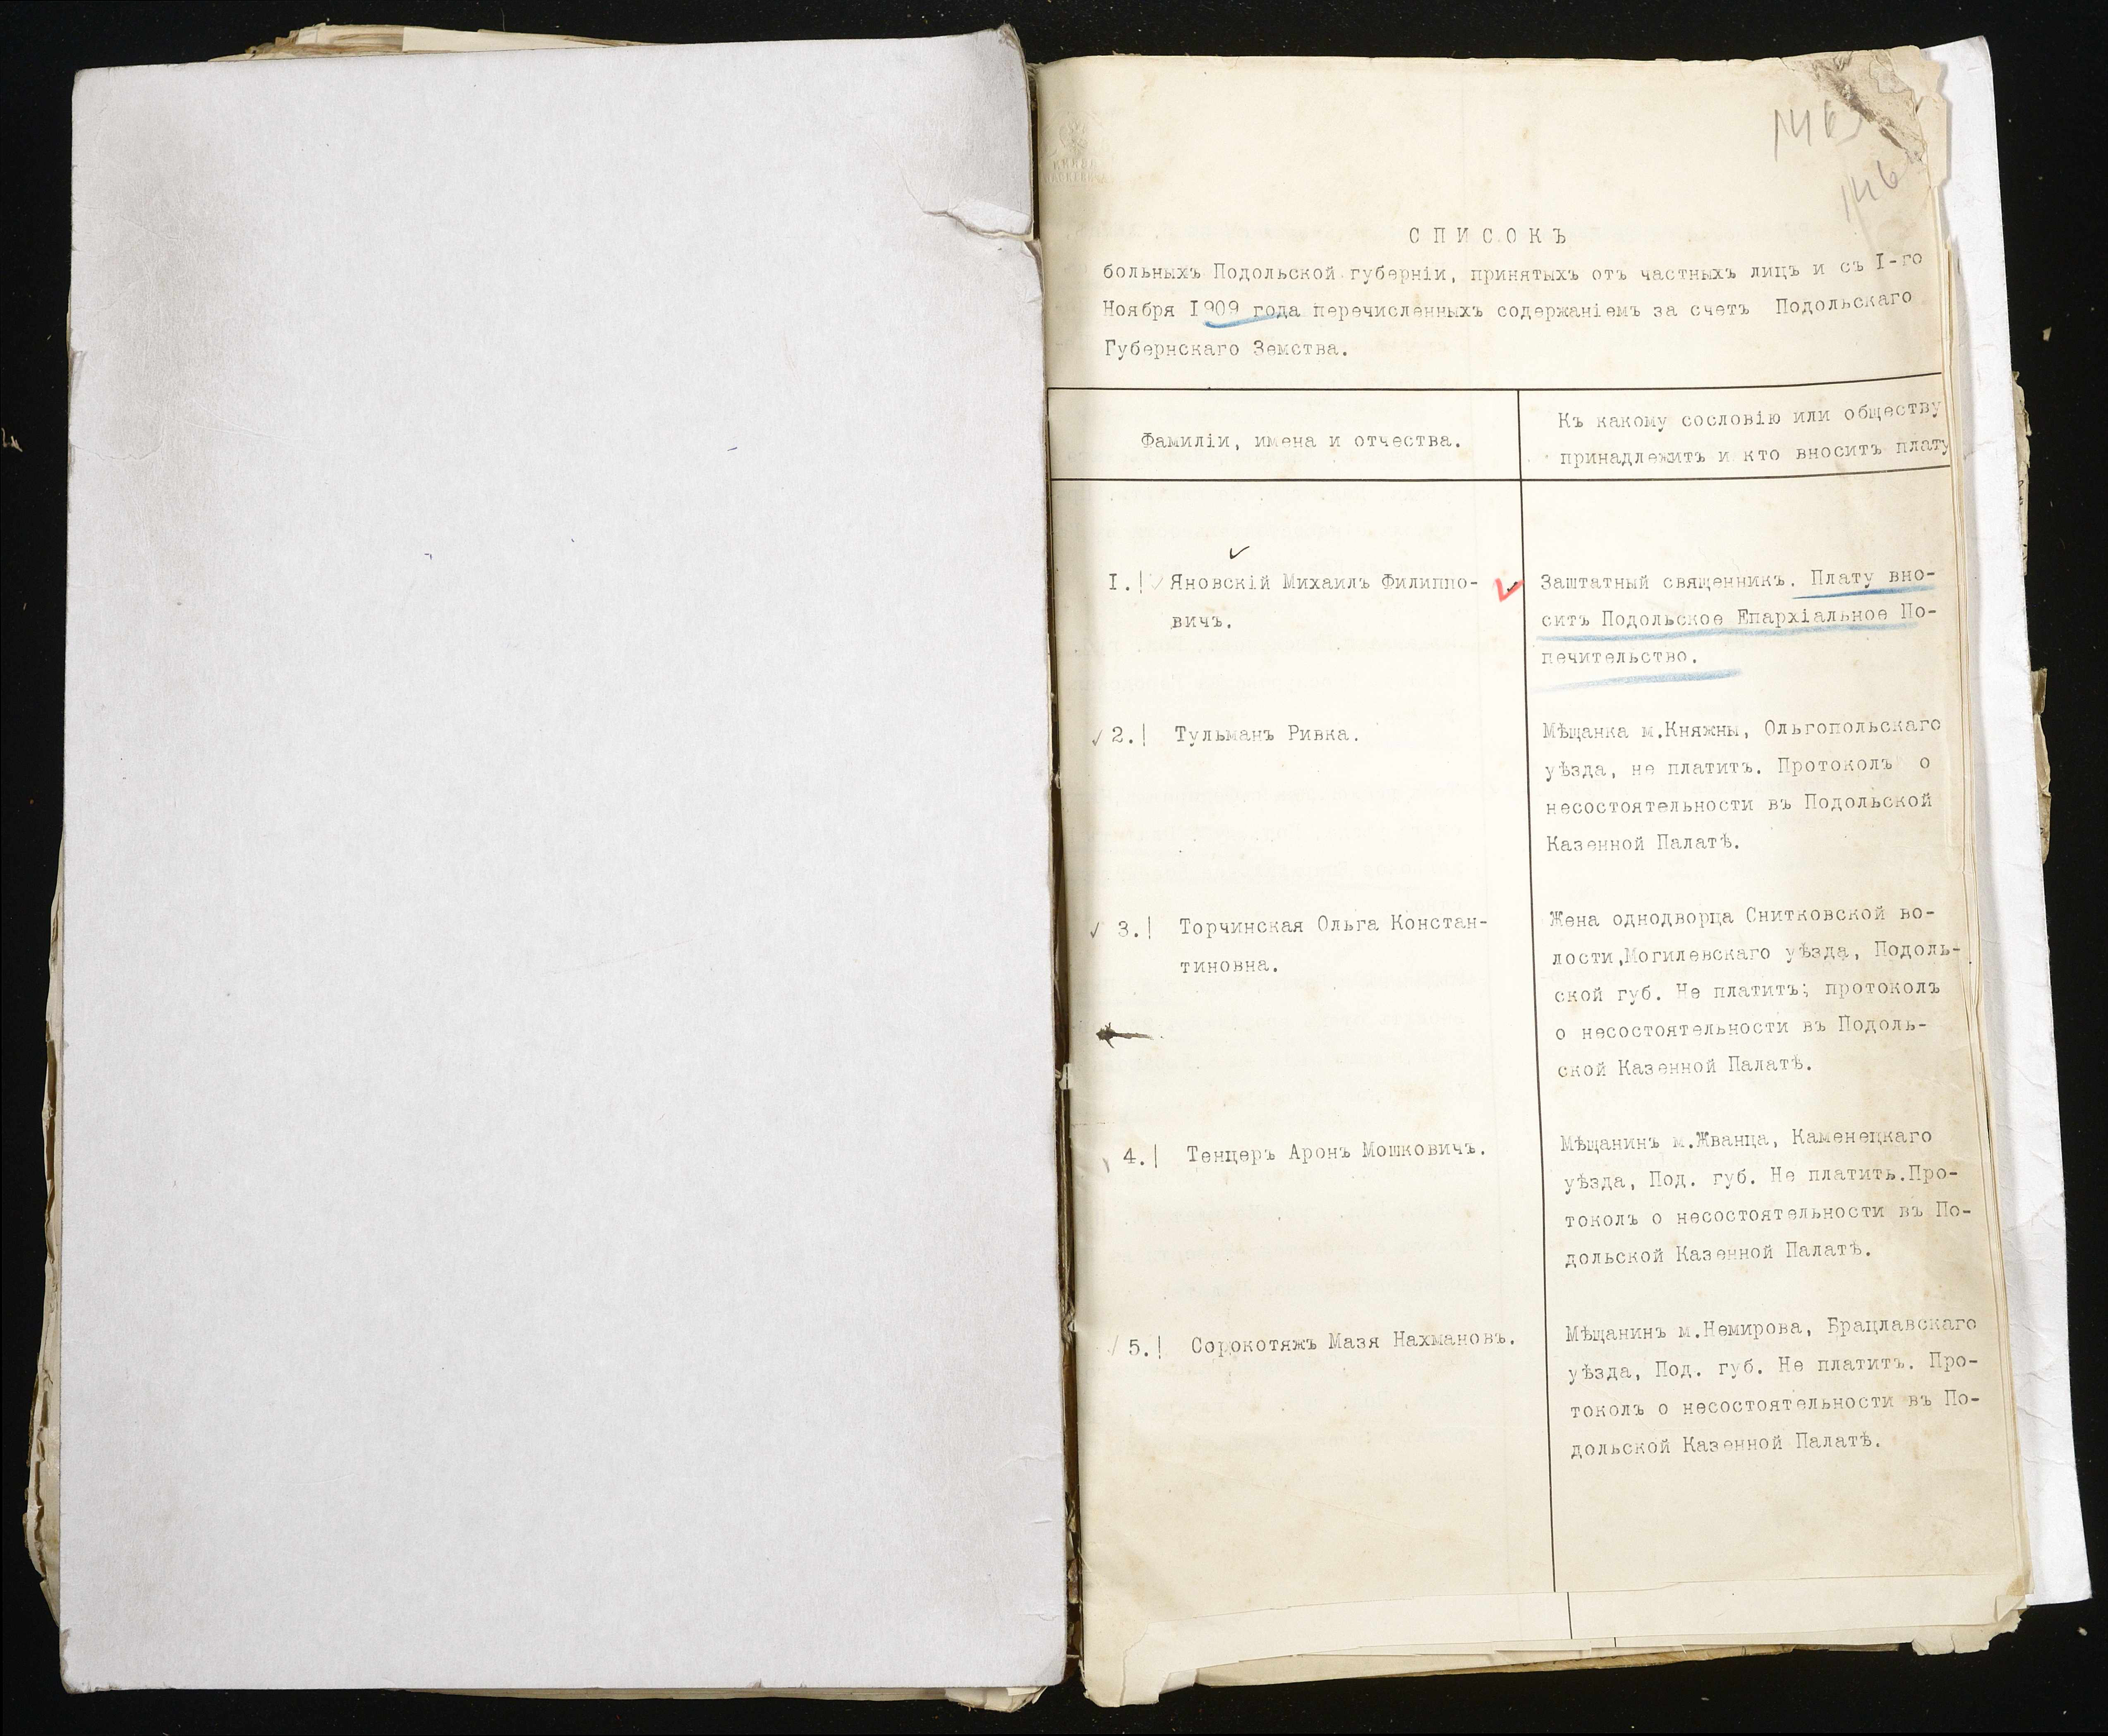 146
146
СПИСОКЪ
больныхъ Подольской губерніи, принятыхъ отъ частныхъ лицъ и съ I-го
Ноября I909 года перечисленныхъ содержаніемъ за счетъ Подольскаго
Губернскаго Земства.
Фамиліи, имена и отчества.
Къ какому сословію или обществу
принадлежитъ и кто вноситъ плату
I.! Яновскій Михаилъ Филиппо-
вичъ.
Заштатный священникъ. Плату вно-
ситъ Подольское Епархіальное По-
печительство.
2.! Тульманъ Ривка.
Мѣщанка м.Княжны, Ольгопольскаго
уѣзда, не платитъ. Протоколъ о
несостоятельности въ Подольской
Казенной Палатѣ.
3.! Торчинская Ольга Констан-
тиновна.
Жена однодворца Снитковской во-
лости,Могилевскаго уѣзда, Подоль-
ской губ. Не платитъ; протоколъ
о несостоятельности въ Подоль-
ской Казенной Палатѣ.
4.! Тенцеръ Аронъ Мошковичъ.
Мѣщанинъ м.Жванца, Каменецкаго
уѣзда, Под. губ. Не платить.Про-
токолъ о несостоятельности въ По-
дольской Казенной Палатѣ.
5.! Сорокотяжъ Мазя Нахмановъ.
Мѣщанинъ м.Немирова, Брацлавскаго
уѣзда, Под. губ. Не платитъ. Про-
токолъ о несостоятельности въ По-
дольской Казенной Палатѣ.